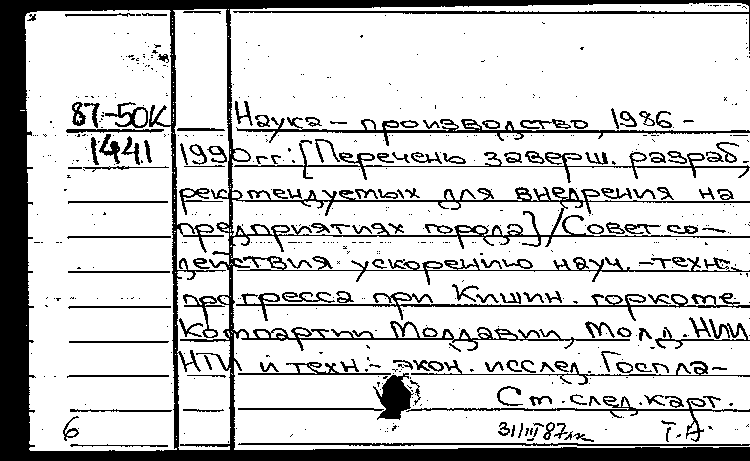 87-50К Наука – производство, 1986 –
1441 1990 гг.: [Перечень заверш. разраб.,
рекомендуемых для внедрения на
предприятиях города] / Совет со-
действия ускорению науч.-техн.
прогресса при Кишин. горкоме
Компартии Молдавии, Молд. НИИ
НТИ и техн.-экон. исслед. Госпла-
Ст. след. карт.
6 31/III 87 Т.А.